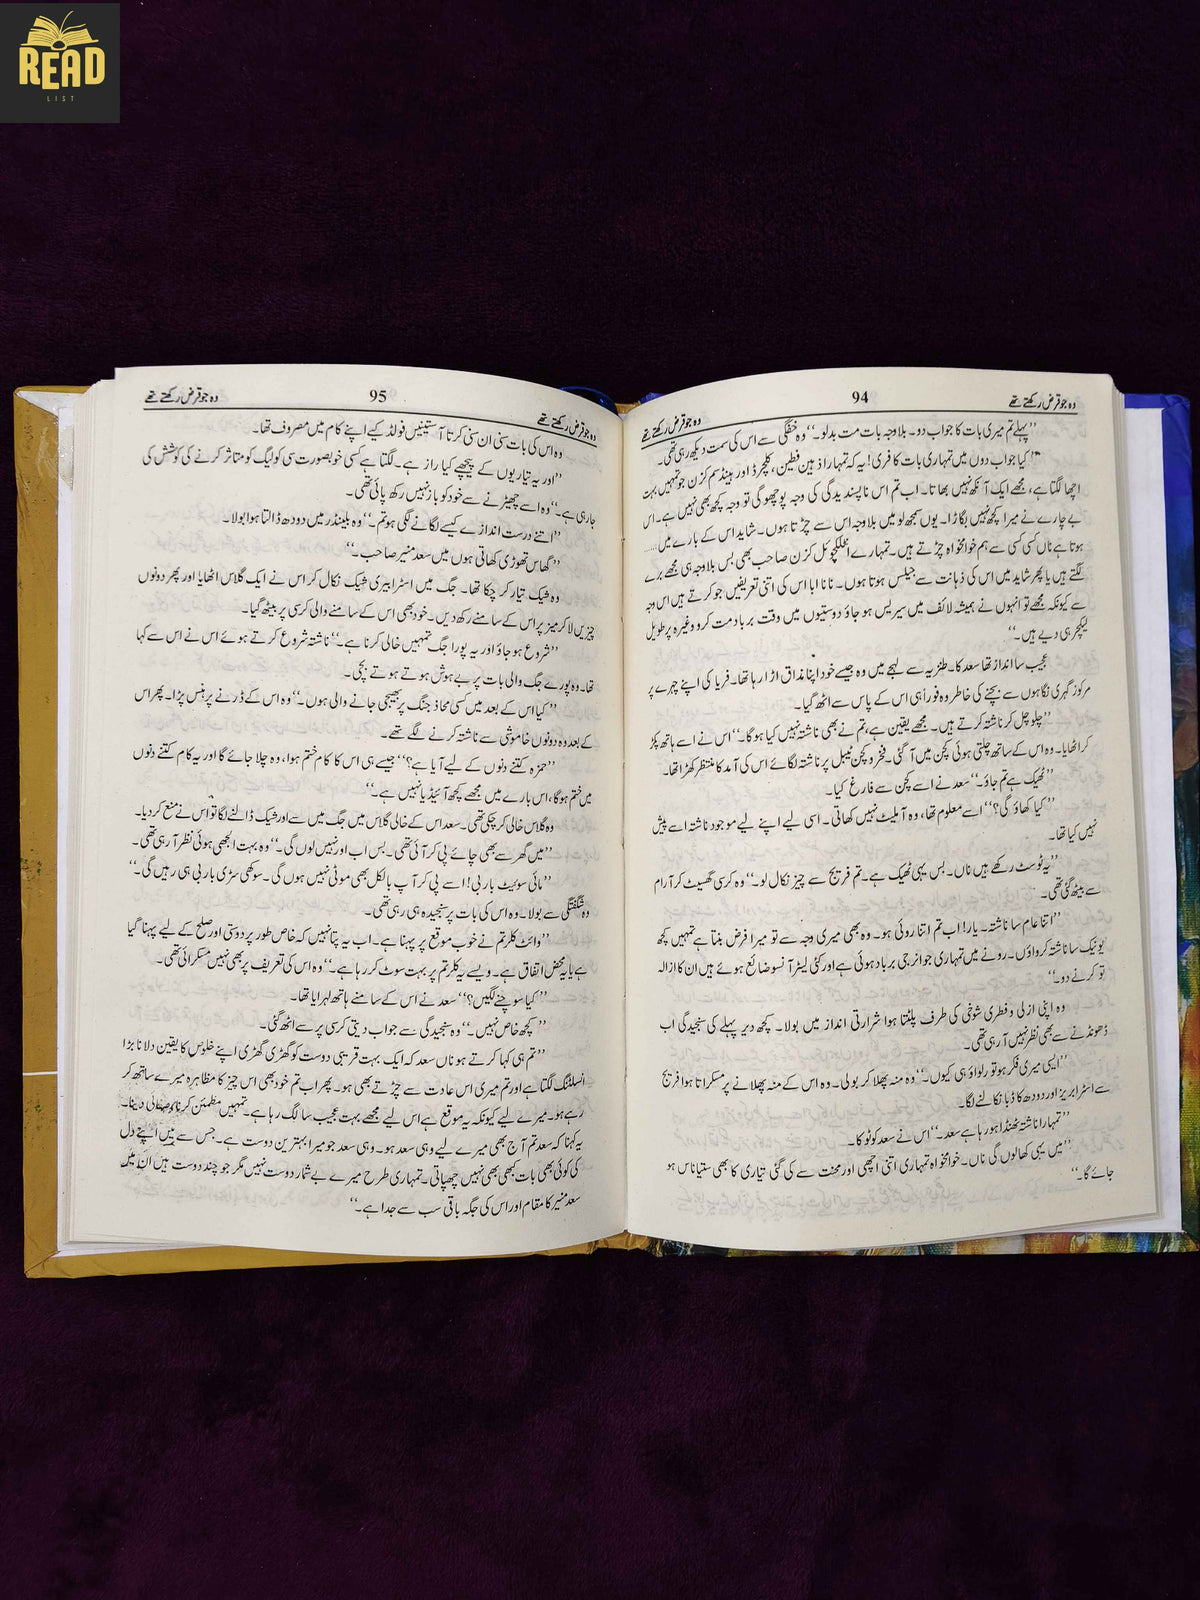 READ
LIST
وہ جو قرض رکھتے تھے 94 وہ جو قرض رکھتے تھے
’’پہلے تم میری بات کا جواب دو۔ بلاوجہ بات مت بدلو۔‘‘ وہ خفگی سے اس کی سمت دیکھ رہی تھی۔
’’کیا جواب دوں میں تمہاری بات کا فری! یہ کہ تمہارا ذہین فطین، کلچرڈ اور ہینڈسم کزن جو تمہیں بہت
اچھا لگتا ہے، مجھے ایک آنکھ نہیں بھاتا۔ اب تم اس ناپسندیدگی کی وجہ پوچھو گی تو وجہ کچھ بھی نہیں ہے۔ اس
بے چارے نے میرا کچھ نہیں بگاڑا۔ یوں سمجھ لو میں بلاوجہ اس سے چڑتا ہوں۔ شاید اس کے بارے میں....
ہوتا ہے ناں کسی کسی سے ہم خوامخواہ چڑتے ہیں۔ تمہارے انٹلکچوئل کزن صاحب بھی بس بلاوجہ ہی مجھے برے
لگتے ہیں یا پھر شاید میں اس کی ذہانت سے جیلس ہوتا ہوں۔ نانا ابا اس کی اتنی تعریفیں جو کرتے ہیں اس وجہ
سے کیونکہ مجھے تو انہوں نے ہمیشہ لائف میں سیریس ہو جاؤ دوستیوں میں وقت برباد مت کرو وغیرہ پر طویل
لیکچر ہی دیے ہیں۔‘‘
عجیب سا انداز تھا سعد کا۔ طنزیہ سے لہجے میں وہ جیسے خود اپنا مذاق اڑا رہا تھا۔ فریا کی اپنے چہرے پر
مرکوز گہری نگاہوں سے بچنے کی خاطر وہ فوراً ہی اس کے پاس سے اٹھ گیا۔
’’چلو چل کر ناشتہ کرتے ہیں۔ مجھے یقین ہے، تم نے بھی ناشتہ نہیں کیا ہوگا۔‘‘ اس نے اسے ہاتھ پکڑ
کر اٹھایا۔ وہ اس کے ساتھ چلتی ہوئی کچن میں آ گئی۔ فخرو کچن ٹیبل پر ناشتہ لگائے اس کی آمد کا منتظر کھڑا تھا۔
’’ٹھیک ہے تم جاؤ۔‘‘ سعد نے اسے کچن سے فارغ کیا۔
’’کیا کھاؤ گی؟‘‘ اسے معلوم تھا، وہ آملیٹ نہیں کھاتی۔ اسی لیے اپنے لیے موجود ناشتہ اسے پیش
نہیں کیا تھا۔
’’یہ ٹوسٹ رکھے ہیں ناں۔ بس یہی ٹھیک ہے۔ تم فریج سے چیز نکال لو۔‘‘ وہ کرسی گھسیٹ کر آرام
سے بیٹھ گئی تھی۔
’’اتنا عام سا ناشتہ۔ یار! اب تم اتنا روئی ہو۔ وہ بھی میری وجہ سے تو میرا فرض بنتا ہے تمہیں کچھ
یونیک سا ناشتہ کرواؤں۔ رونے میں تمہاری جو انرجی برباد ہوئی ہے اور کئی لیٹر آنسو ضائع ہوئے ہیں ان کا ازالہ
تو کرنے دو۔‘‘
وہ اپنی ازلی و فطری شوخی کی طرف پلٹتا ہوا شرارتی انداز میں بولا۔ کچھ دیر پہلے کی سنجیدگی اب
ڈھونڈنے سے بھی نظر نہیں آ رہی تھی۔
’’ایسی میری فکر ہو تو رلواؤ ہی کیوں۔‘‘ وہ منہ پھلا کر بولی۔ وہ اس کے منہ پھلانے پر مسکراتا ہوا فریج
سے اسٹرابریز اور دودھ کا ڈبا نکالنے لگا۔
’’تمہارا ناشتہ ٹھنڈا ہو رہا ہے سعد۔‘‘ اس نے سعد کو ٹوکا۔
’’میں یہی کھالوں گی ناں۔ خوامخواہ تمہاری اتنی اچھی اور محنت سے کی گئی تیاری کا بھی ستیاناس ہو
جائے گا۔‘‘
وہ جو قرض رکھتے تھے 95 وہ جو قرض رکھتے تھے
وہ اس کی بات سنی ان سنی کرتا آستینیں فولڈ کیے اپنے کام میں مصروف تھا۔
’’اور یہ تیاریوں کے پیچھے کیا راز ہے۔ لگتا ہے کسی خوبصورت سی کولیگ کو متاثر کرنے کی کوشش کی
جا رہی ہے۔‘‘ وہ اسے چھیڑنے سے خود کو باز نہیں رکھ پائی تھی۔
’’اتنے درست اندازے کیسے لگانے لگی ہو تم۔‘‘ وہ بلینڈر میں دودھ ڈالتا ہوا بولا۔
’’گھاس تھوڑی کھاتی ہوں میں سعد منیر صاحب۔‘‘
وہ شیک تیار کر چکا تھا۔ جگ میں اسٹرابیری شیک نکال کر اس نے ایک گلاس اٹھایا اور پھر دونوں
چیزیں لا کر میز پر اس کے سامنے رکھ دیں۔ خود بھی اس کے سامنے والی کرسی پر بیٹھ گیا۔
’’شروع ہو جاؤ اور یہ پورا جگ تمہیں خالی کرنا ہے۔‘‘ ناشتہ شروع کرتے ہوئے اس نے اس سے کہا
تھا۔ وہ پورے جگ والی بات پر بے ہوش ہوتے ہوتے بچی۔
’’کیا اس کے بعد میں کسی محاذ جنگ پر بھیجی جانے والی ہوں۔‘‘ وہ اس کے ڈرنے پر ہنس پڑا۔ پھر اس
کے بعد وہ دونوں خاموشی سے ناشتہ کرنے لگے تھے۔
’’حمزہ کتنے دنوں کے لیے آیا ہے؟‘‘ جیسے ہی اس کا کام ختم ہوا، وہ چلا جائے گا اور یہ کام کتنے دنوں
میں ختم ہوگا، اس بارے میں مجھے کچھ آئیڈیا نہیں ہے۔‘‘
وہ گلاس خالی کر چکی تھی۔ سعد اس کے خالی گلاس میں جگ میں سے اور شیک ڈالنے لگا تو اس نے منع کر دیا۔
’’میں گھر سے بھی چائے پی کر آئی تھی۔ بس اب اور نہیں لوں گی۔‘‘ وہ بہت الجھی ہوئی نظر آ رہی تھی۔
’’مائی سوئیٹ باربی! اسے پی کر آپ بالکل بھی موٹی نہیں ہوں گی۔ سوکھی سڑی باربی ہی رہیں گی۔‘‘
وہ شگفتگی سے بولا۔ وہ اس کی بات پر سنجیدہ ہی رہی تھی۔
’’وائٹ کلر تم نے خوب موقع پر پہنا ہے۔ اب یہ پتا نہیں کہ خاص طور پر دوستی اور صلح کے لیے پہنا گیا
ہے یا یہ محض اتفاق ہے۔ ویسے یہ کلر تم پر بہت سوٹ کر رہا ہے۔‘‘ وہ اس کی تعریف پر بھی نہیں مسکرائی تھی۔
’’کیا سوچنے لگیں؟‘‘ سعد نے اس کے سامنے ہاتھ لہرایا تھا۔
’’کچھ خاص نہیں۔‘‘ وہ سنجیدگی سے جواب دیتی کرسی پر سے اٹھ گئی۔
’’تم ہی کہا کرتے ہو ناں سعد کہ ایک بہت قریبی دوست کو گھڑی گھڑی اپنے خلوص کا یقین دلانا بڑا
انسلٹنگ لگتا ہے اور تم میری اس عادت سے چڑتے بھی ہو۔ پھر اب تم خود بھی اس چیز کا مظاہرہ میرے ساتھ کر
رہے ہو۔ میرے لیے کیونکہ یہ موقع ہے اس لیے مجھے بہت عجیب سا لگ رہا ہے۔ تمہیں مطمئن کرنا، صفائی دینا۔
یہ کہنا کہ سعد تم آج بھی میرے لیے وہی سعد ہو۔ وہی سعد جو میرا بہترین دوست ہے۔ جس سے میں اپنے دل
کی کوئی بھی بات کبھی بھی نہیں چھپاتی۔ تمہاری طرح میرے بے شمار دوست نہیں مگر جو چند دوست ہیں ان میں
سعد منیر کا مقام اور اس کی جگہ باقی سب سے جدا ہے۔‘‘